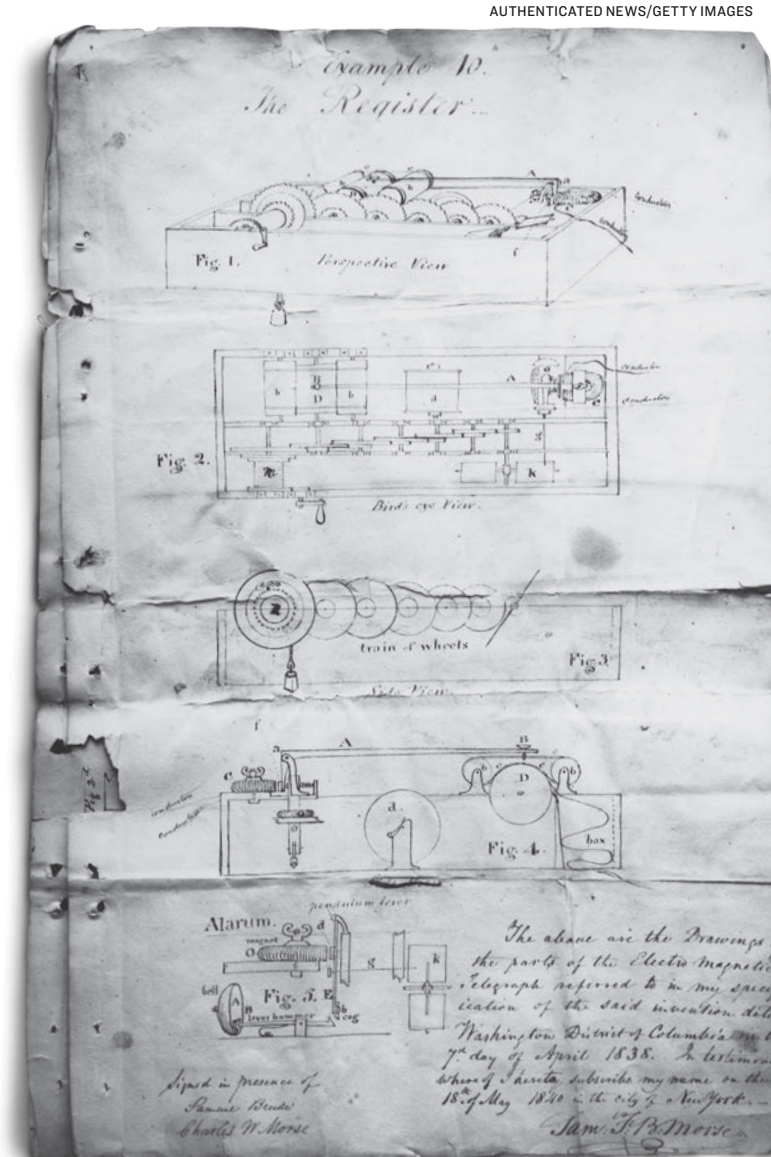 AUTHENTICATED NEWS/GETTY IMAGES
Example 10.
The Register.
A
a
b
conductor
Fig. 1.
Perspective View
f
B
b
D
b
d
A
conductor
conductor
e
Fig. 2.
k
Bird's eye View.
train of wheels
Fig 3.
Side View.
f
a
A
B
c
b
D
b
conductor
conductor
d
Fig. 4.
box
pendulum lever
Alarum.
d
magnet
O
g
k
bell
A
Fig. 5.
E
B
lever hammer
b
cog
The above are the Drawings
the parts of the Electro Magnetic
Telegraph referred to in my speci
ication of the said invention dat
Washington District of Columbia
7th day of April 1838. In testimon
whereof I hereto subscribe my name on th
18th of May 1840 in the city of New York.
Sam. F. B. Morse
Signed in presence of
Charles W Morse